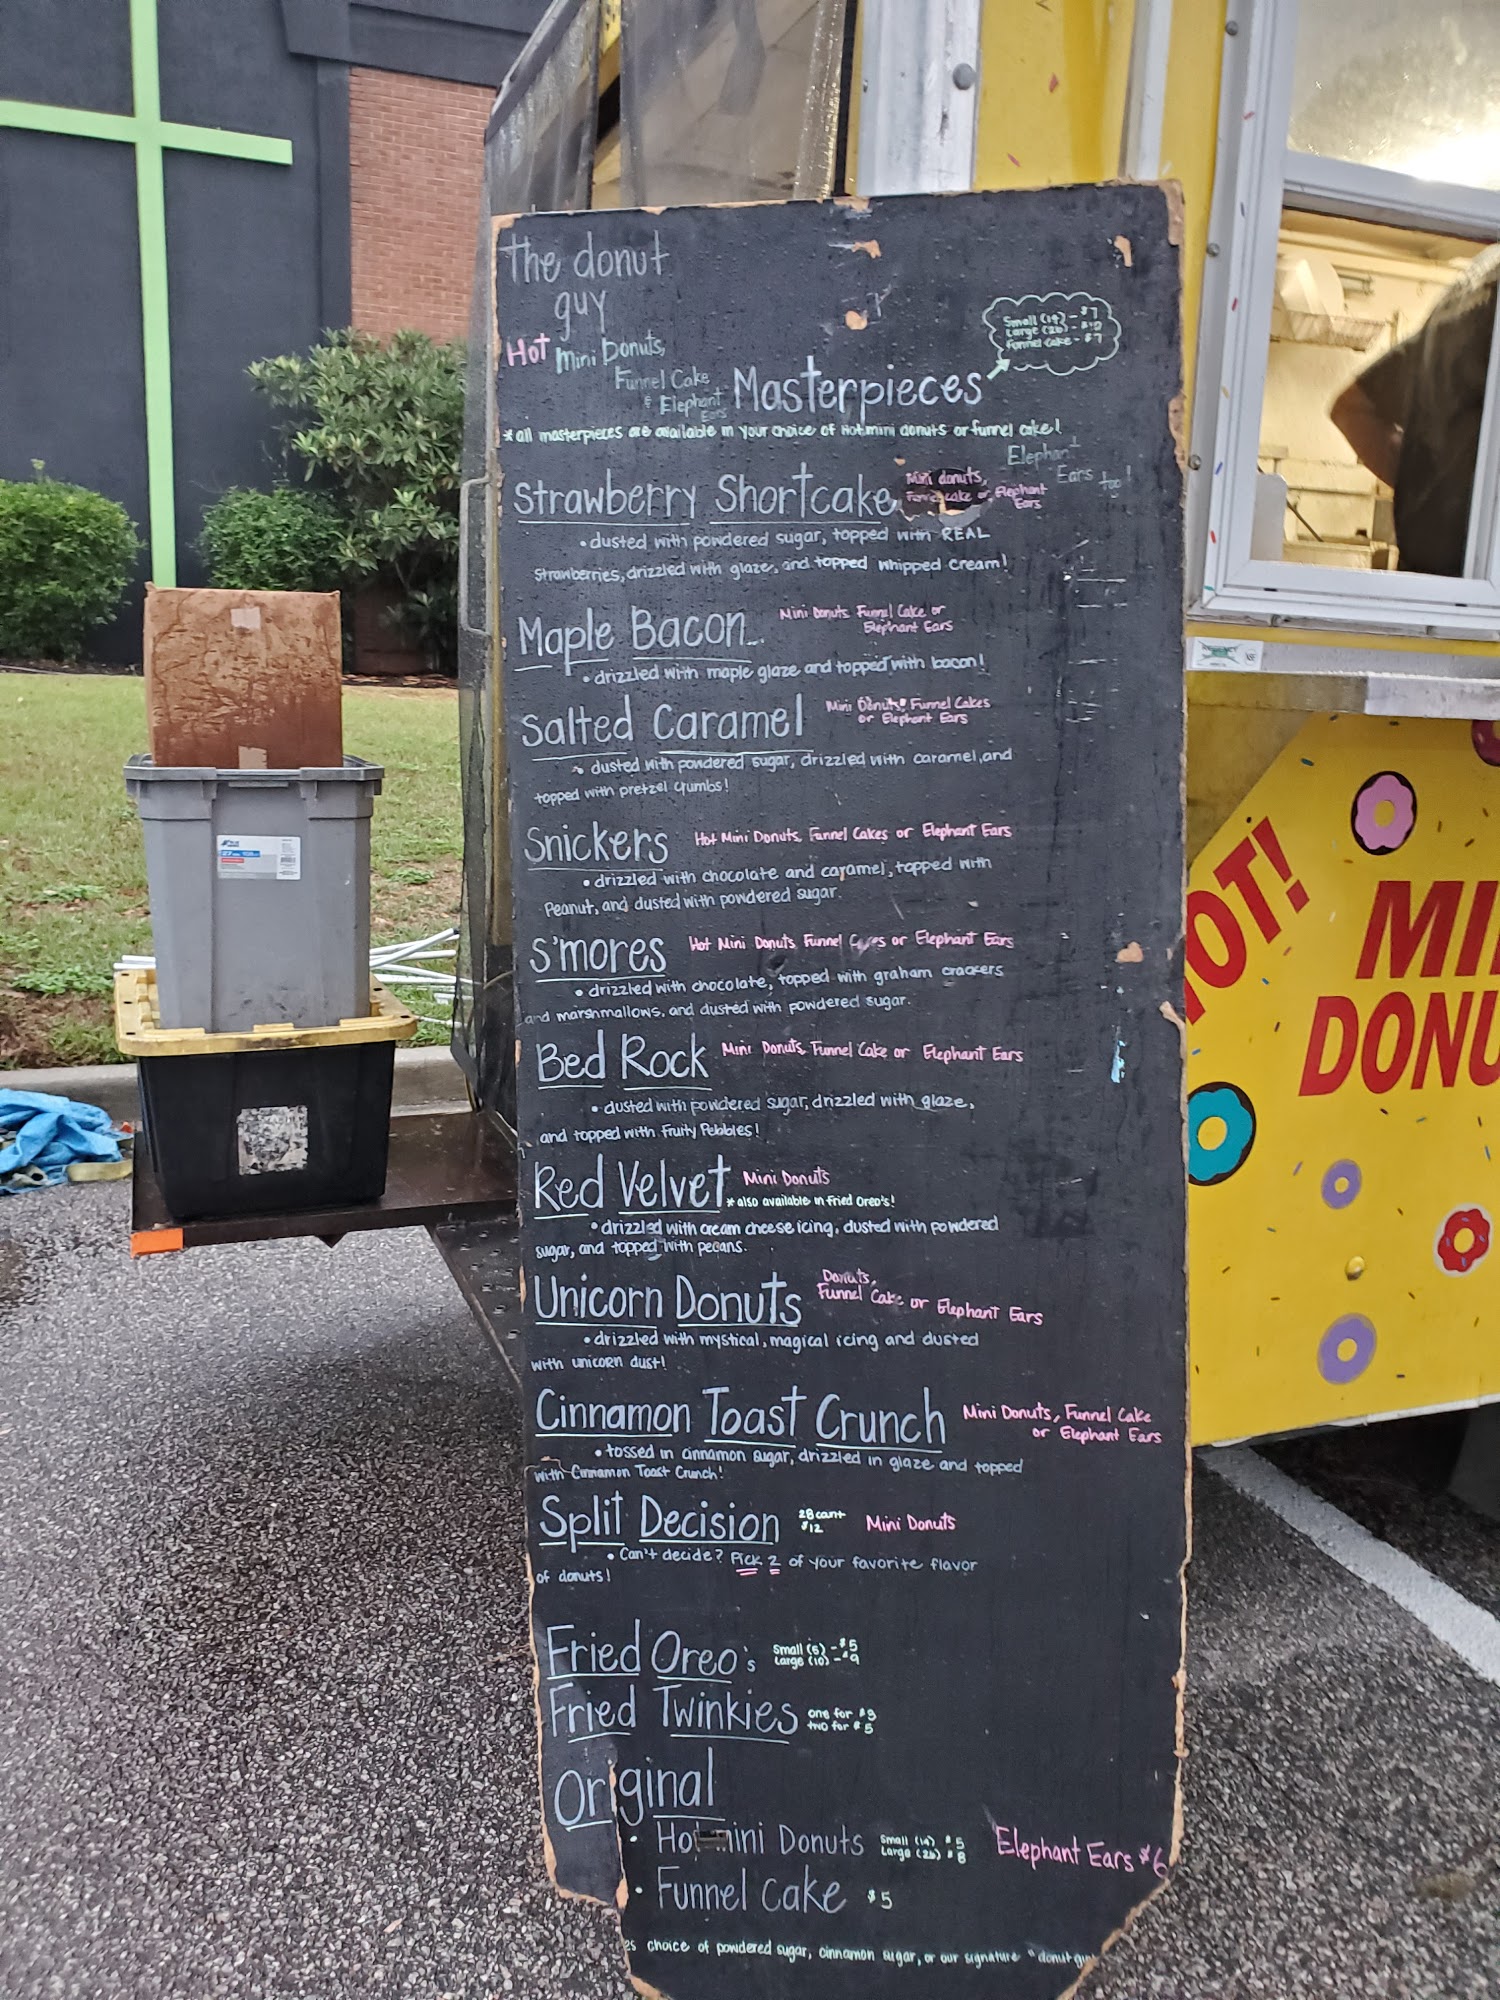 the donut
guy
Hot Mini Donuts,
Funnel Cake
& Elephant
Ears
Masterpieces
Small (14) - $7
Large (26) - $10
Funnel Cake - $7
*all masterpieces are available in your choice of Hot mini donuts or funnel cake!
Elephant
Ears too!
Strawberry Shortcake
Mini donuts,
Funnel cake or Elephant
Ears
• dusted with powdered sugar, topped with REAL
strawberries, drizzled with glaze, and topped whipped cream!
Maple Bacon
Mini Donuts Funnel Cake or
Elephant Ears
• drizzled with maple glaze and topped with bacon!
Salted Caramel
Mini Donuts, Funnel Cakes
or Elephant Ears
• dusted with powdered sugar, drizzled with caramel, and
topped with pretzel crumbs!
Snickers Hot Mini Donuts, Funnel Cakes or Elephant Ears
• drizzled with chocolate and caramel, topped with
Peanut, and dusted with powdered sugar.
S'mores Hot Mini Donuts Funnel Cakes or Elephant Ears
• drizzled with chocolate, topped with graham crackers
and marshmallows, and dusted with powdered sugar.
Bed Rock Mini Donuts, Funnel Cake or Elephant Ears
• dusted with powdered sugar, drizzled with glaze,
and topped with Fruity Pebbles!
Red Velvet Mini Donuts
*also available in Fried Oreo's!
• drizzled with cream cheese icing, dusted with powdered
sugar, and topped with pecans.
Unicorn Donuts
Donuts,
Funnel Cake or Elephant Ears
• drizzled with mystical, magical icing and dusted
with unicorn dust!
Cinnamon Toast Crunch
Mini Donuts, Funnel Cake
or Elephant Ears
• tossed in cinnamon sugar, drizzled in glaze and topped
with Cinnamon Toast Crunch!
Split Decision
28 count
$12
Mini Donuts
• Can't decide? Pick 2 of your favorite flavor
of donuts!
Fried Oreo's
Small (5) - $5
Large (10) - $9
Fried Twinkies
one for $3
two for $5
Original
• Hot mini Donuts
Small (14) $5
Large (26) $8
Elephant Ears $6
• Funnel Cake $5
choice of powdered sugar, cinnamon sugar, or our signature "donut guy
HOT!
MI
DONU
27